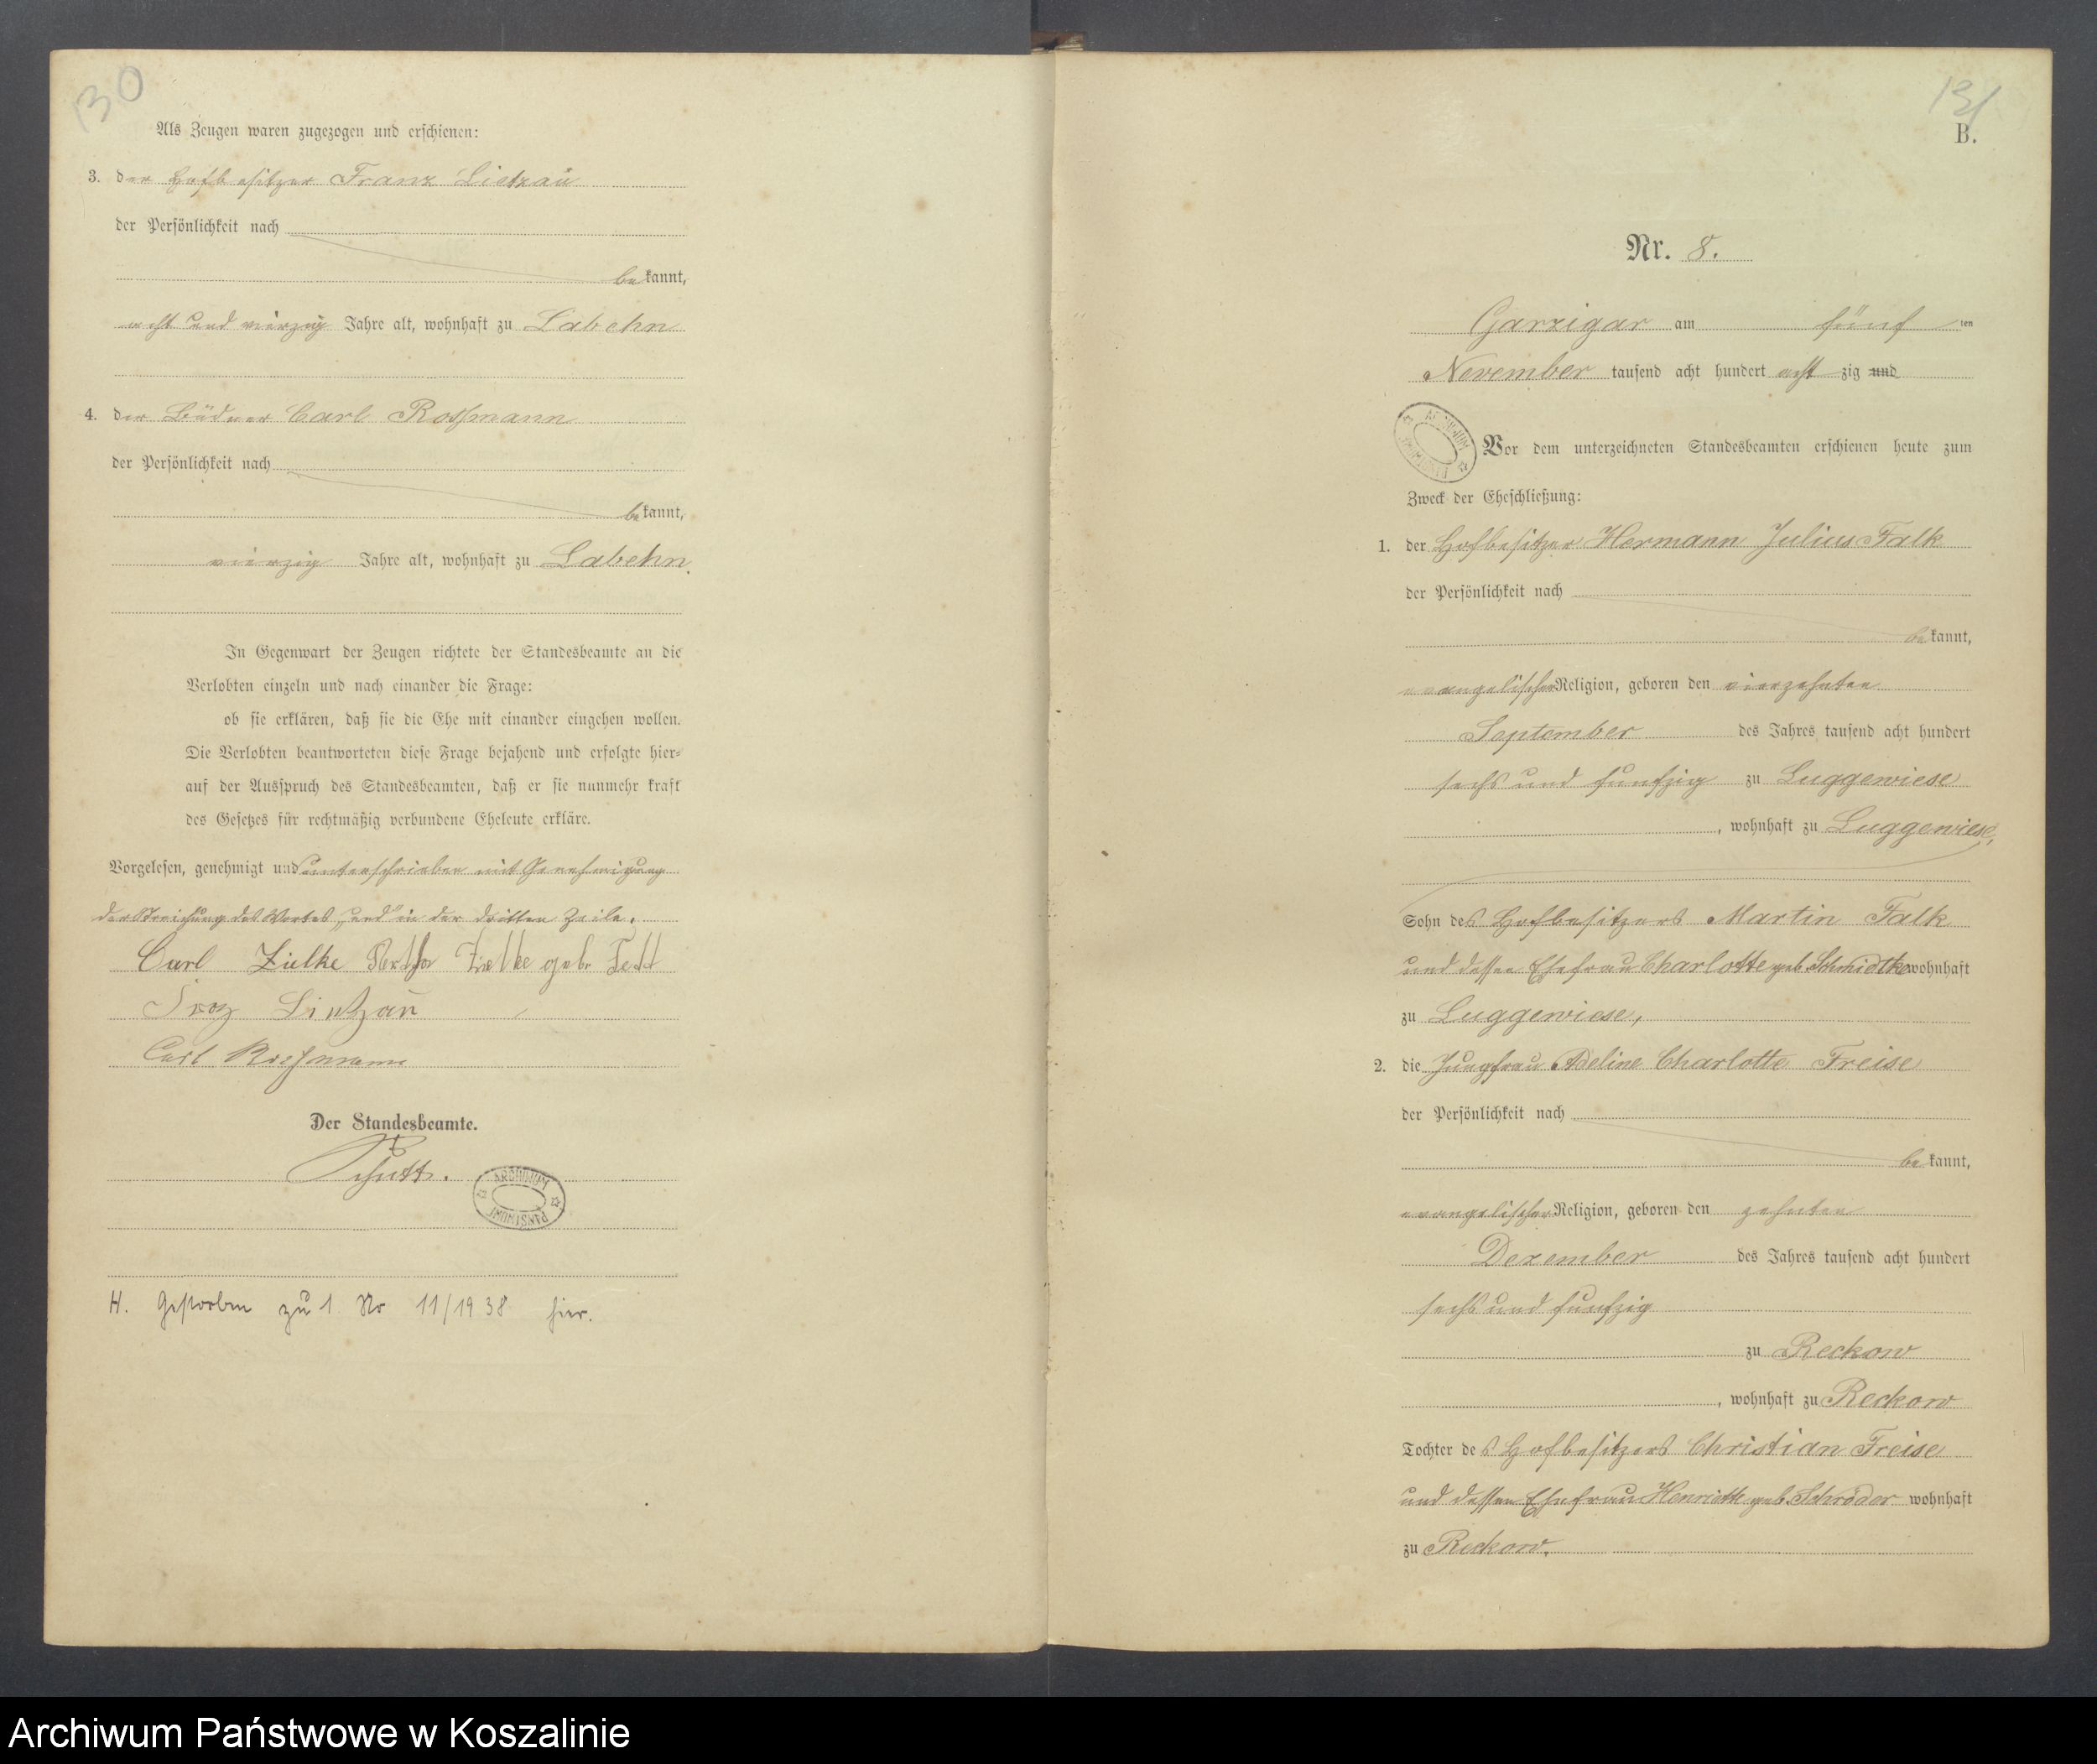 130
Als Zeugen waren zugezogen und erschienen:
3. der Hofbesitzer Franz Lietzau
der Persönlichkeit nach
bekannt,
acht und vierzig Jahre alt, wohnhaft zu Labehn
4. der Büdner Carl Roßmann
der Persönlichkeit nach
bekannt,
vierzig Jahre alt, wohnhaft zu Labehn.
In Gegenwart der Zeugen richtete der Standesbeamte an die
Verlobten einzeln und nach einander die Frage:
ob sie erklären, daß sie die Ehe mit einander eingehen wollen.
Die Verlobten beantworteten diese Frage bejahend und erfolgte hier-
auf der Ausspruch des Standesbeamten, daß er sie nunmehr kraft
des Gesetzes für rechtmäßig verbundene Eheleute erkläre.
Vorgelesen, genehmigt und unterschrieben mit Genehmigung
der Streichung des Wortes „und" in der dritten Zeile.
Carl Zielke Bertha Zielke geb.
Franz Lietzau
Carl Roßmann
Der Standesbeamte.
ARCHIWUM PAŃSTWOWE
H. Gestorben zu 1 Nr 11/1938 hier.
131
B.
Nr. 8.
Garzigar am fünften
November tausend acht hundert achtzig und
ARCHIWUM PAŃSTWOWE
Vor dem unterzeichneten Standesbeamten erschienen heute zum
Zweck der Eheschließung:
1. der Hofbesitzer Hermann Julius Falk
der Persönlichkeit nach
bekannt,
evangelischer Religion, geboren den vierzehnten
September des Jahres tausend acht hundert
sechs und funfzig zu Luggewiese
, wohnhaft zu Luggewiese,
Sohn des Hofbesitzers Martin Falk
und dessen Ehefrau Charlotte geb. Schmidtke wohnhaft
zu Luggewiese,
2. die Jungfrau Adeline Charlotte Freise
der Persönlichkeit nach
bekannt,
evangelischer Religion, geboren den zehnten
Dezember des Jahres tausend acht hundert
sechs und funfzig
zu Reckow
, wohnhaft zu Reckow
Tochter des Hofbesitzers Christian Freise
und dessen Ehefrau Henriette geb. Schröder wohnhaft
zu Reckow.
Archiwum Państwowe w Koszalinie